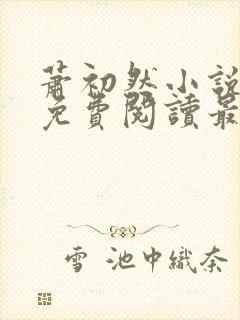 蕭初然小說
免費閱讀最
雪 池中織奈